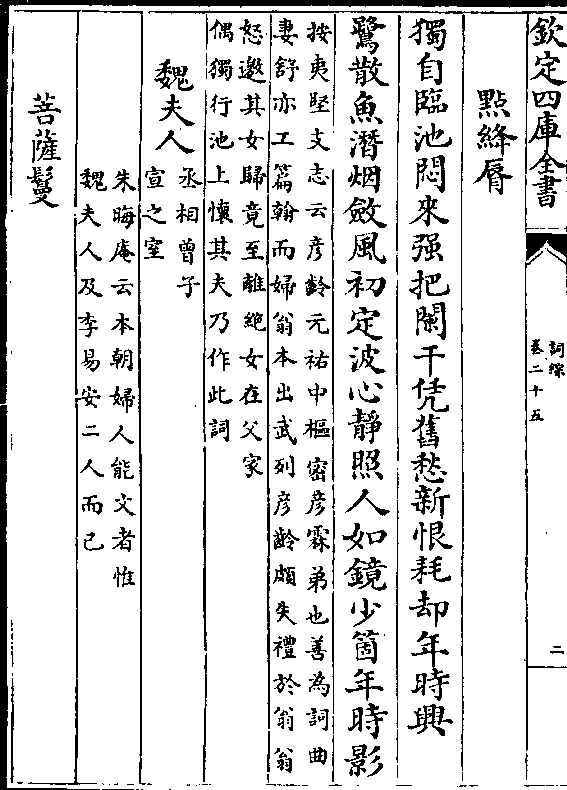 欽定四庫全書
詞綜
卷二十五
二
點絳脣
獨自臨池悶來强把闌干凭舊愁新恨耗却年時興
鷺散魚潛烟斂風初定波心靜照人如鏡少箇年時影
按夷堅支志云彦齡元祐中樞密彦霖弟也善為詞曲
妻舒亦工篇翰而婦翁本出武列彦齡頗失禮於翁翁
怒邀其女歸竟至離絶女在父家
偶獨行池上懷其夫乃作此詞
魏夫人
丞相曾子
宣之室
朱晦庵云本朝婦人能文者惟
魏夫人及李易安二人而已
菩薩鬘